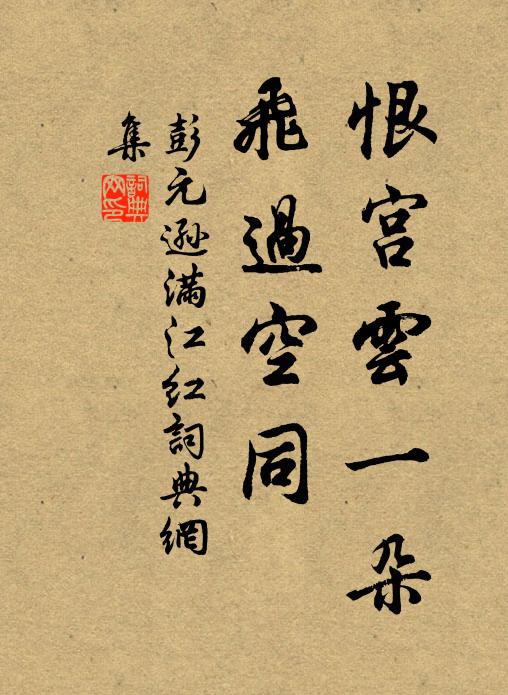 恨宮雲一朵
飛過空同
彭元遜滿江紅詞典網
集
詞典網印